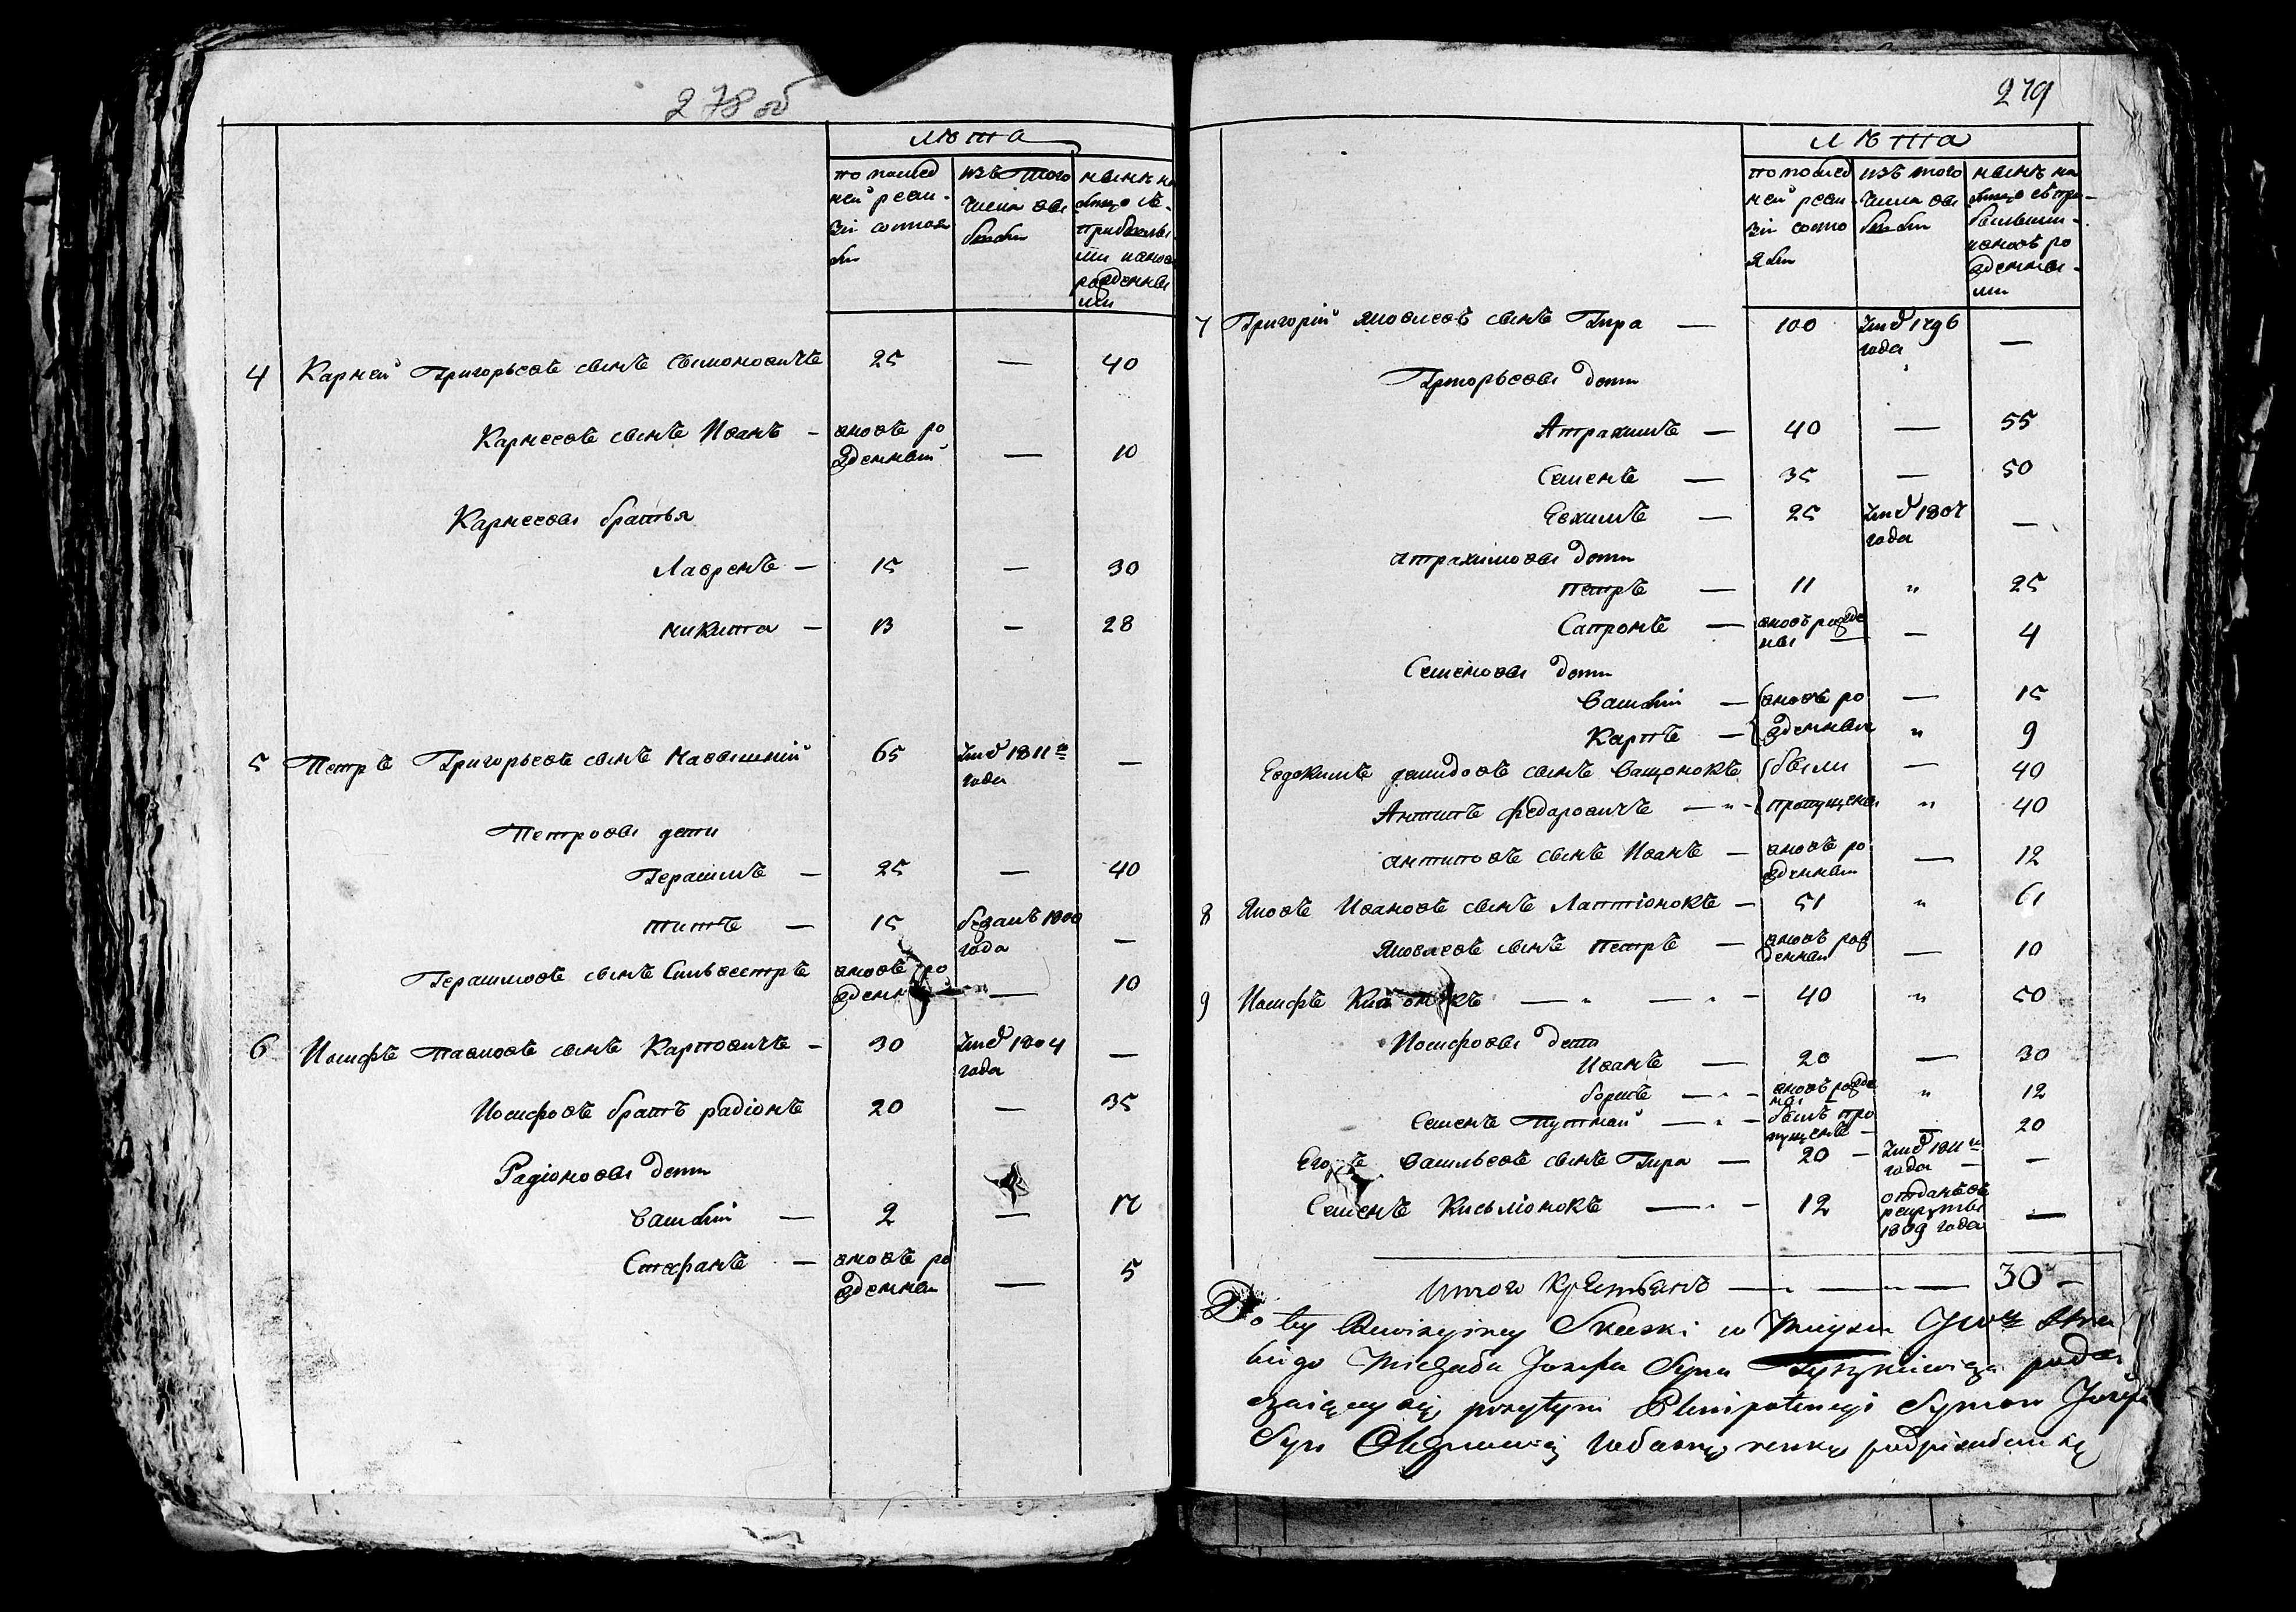 278 об
лѣта
по послед
ней реви-
зіи состоя
ли
изъ того
числа вы
были
нынѣ на
лицо съ
прибылы
ми и вновь
рожденны
ми
4 Карней Григорьевъ сынъ Сымоновичъ 25 — 40
Карнеевъ сынъ Иванъ — вновь ро
жденный — 10
Карнеевы братья
Лавренъ — 15 — 30
Микита — 13 — 28
5 Петръ Григорьевъ сынъ 65 Умеръ 1811го
года —
Петровы дети
Герасимъ — 25 — 40
Титъ — 15 бежалъ 1808
года —
Герасимовъ сынъ Сильвестръ вновь ро
жденн — 10
6 Иосифъ Павловъ сынъ Карповичъ — 30 Умер 1804
года —
Иосифовъ братъ радіонъ 20 — 35
Радіоновы дети
Василій — 2 — 17
Стефанъ — вновь ро
жденны — 5
279
лѣта
по послед
ней реви
зіи состо
яли
изъ того
числа вы
были
нынѣ на
лицо съ при-
былыми
и вновь ро
жденны-
ми
7 Григорій Яковлевъ сынъ Гира — 100 Умер 1796
года —
Григорьевы дети
Атрахимъ — 40 — 55
Семенъ — 35 — 50
Евхимъ — 25 Умер 1807
года —
Атрахимовы дети
Петръ — 11 " 25
Сапронъ — вновь рожде
ны — 4
Семеновы дети
Василій — вновь ро — 15
Карпъ — жденныи " 9
Евдокимъ демидовъ сынъ Ващонокъ были — 40
Антипъ федаровичъ — " — пропущены " 40
Антиповъ сынъ Иванъ — вновь ро
жденны — 12
8 Яковъ Ивановъ сынъ Лаптіонокъ — 51 " 61
Яковлевъ сынъ Петръ — вновь рож
денны — 10
9 Иосифъ — " — " — 40 " 50
Иосифовы дети
Иванъ — 20 — 30
Борисъ — " — вновь рожде
ны " 12
Семенъ Путный — " — былъ про
пущенъ — — 20
Васильевъ сынъ Гира — 20 — Умер 1811го
года — —
Семенъ Кисьліонокъ — " — 12 отданъ въ
рекруты
1809 года —
Итого крестьянъ — " — " — 30 —
Do tey Rewizyiney Skaski w Mieyscu JWo Hra
biego Michała Jozefa Syna Tyszkiewicza poda
Plenipotencyi Symon Jozefa
Syn własną ręką podpisałem się